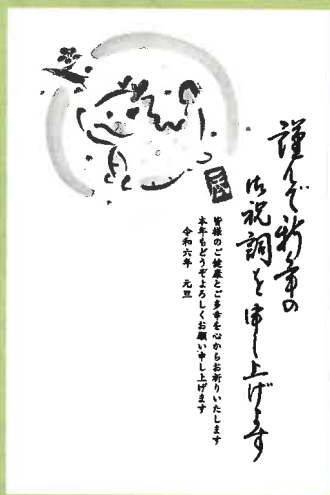 謹んで新年の
御祝詞を申し上げます
皆様のご健康とご多幸を心からお祈りいたします
本年もどうぞよろしくお願い申し上げます
令和六年　元旦